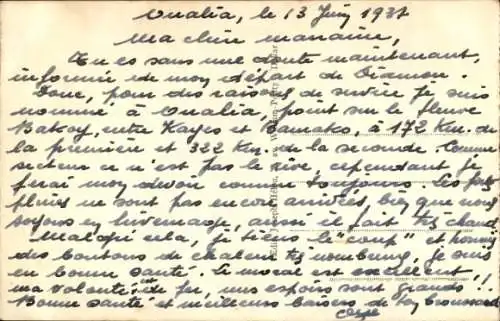 Oualia, le 13 Juin 1937
Ma chère marraine,
Tu es sans une doute maintenant,
informée de mon départ de Diamou.
Donc, pour des raisons de service je suis
nommé à Oualia, point sur le fleuve
Bakoy, entre Kayes et Bamako, à 172 Km. de
la première et 322 Km. de la seconde. Comme
secteur ce n'est pas le rêve, cependant je
ferai mon devoir comme toujours. Les
pluies ne sont pas encore arrivées, bien que nous
soyons en hivernage, aussi il fait très chaud.
Malgré cela, je tiens le "coup" et hormis
des boutons de chaleur très nombreux, je suis
en bonne santé. Le moral est excellent
ma volonté est de fer, mes espoirs sont grands!!
Bonne santé et meilleurs baisers de ton broussard